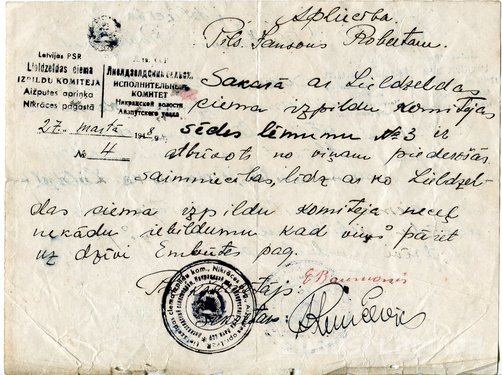 Apliecība.
Pils. Jansons Robertam.
Latvijas PSR
Lieldzeldas ciema
IZPILDU KOMITEJA
Aizputes apriņķa
Nīkrāces pagastā
Лиелдзелдский сельск.
ИСПОЛНИТЕЛЬНЫЙ
КОМИТЕТ
Никрацской волости
Айзпутского уезда
27. martā 1948 g.
№ 4
Sakarā ar Lieldzeldas
ciema izpildu komitejas
sēdes lēmumu №3 ir
atbrīvots no viņam piederošās
saimniecības, līdz ar ko Lieldzel-
das ciema izpildu komiteja neceļ
nekādu iebildumu kad viņš pāriet
uz dzīvi Embūtes pag.
Priekšsēdētājs:
Sekretārs: